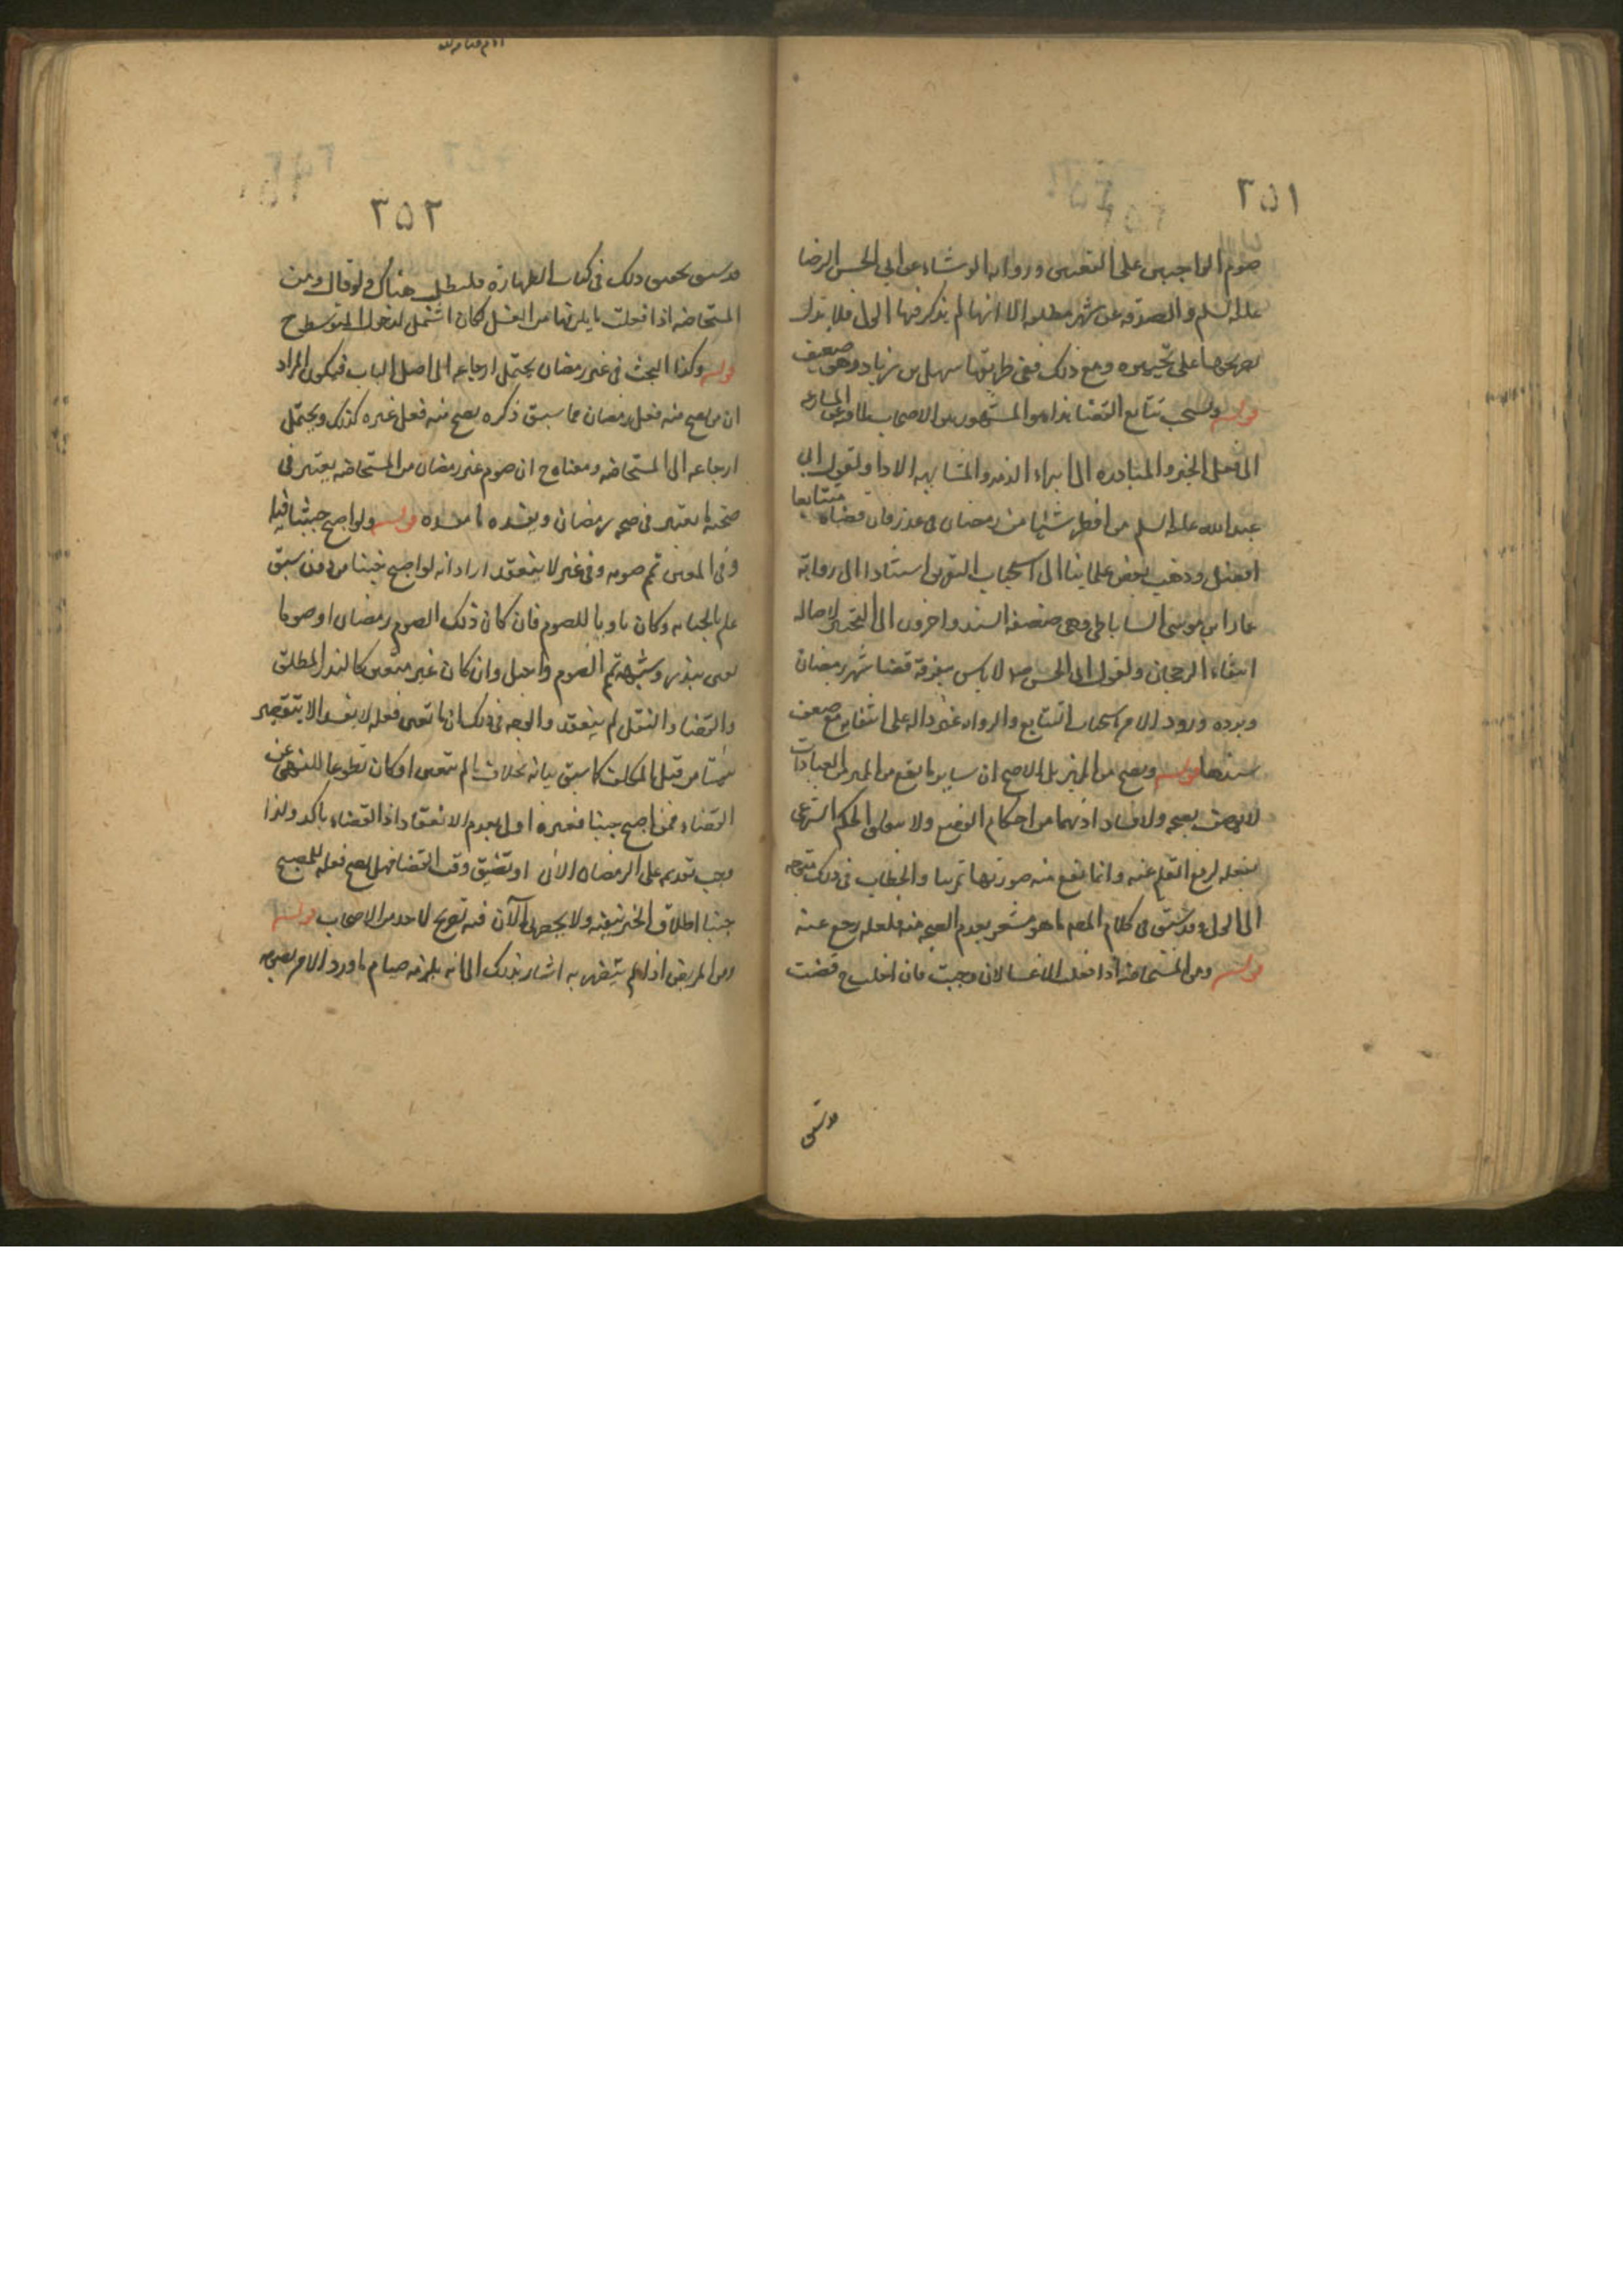 ٢٥١
صوم الواجبين على التعيين ورواية الوشاء عن ابي الحسن الرضا
عليه السلم والصدقة عن شهر مطلقه الا انها لم يذكر فيها الولي فلا تدل
بصريحها على تخييره ومع ذلك ففي طريقها سهل بن زياد وهو ضعيف
قوله ويستحب تتابع القضا هذا هو المشهور بين الاصحاب لما فيه من المسارعه
الى فعل الخير والمبادره الى ابراء الذمه والمشابهه الادا ولقول ابي
عبد الله عليه السلم من افطر شيئا من رمضان في عذر فان قضاه متتابعا
افضل وذهب بعض علمائنا الى استحباب التفريق استنادا الى رواية
عمار ابن موسى الساباطي وهي ضعيفة السند واخرون الى التخيير لاصالة
انتفاء الرجحان ولقول ابي الحسن ع لا باس بتفرقة قضا شهر رمضان
ويرده ورود الامر باستحباب التتابع والرواية غير داله على انتفايه مع ضعف
سندها قوله ويصح من المميز بل الاصح ان ساير ما يقع من المميز من العبادات
لا يوصف بصحه ولا فساد اذ هما من احكام الوضع ولا يتعلق الحكم الشرعي
بفعله لرفع القلم عنه وانما تقع منه صورتها تمرينا والخطاب في ذلك متوجه
الى الولي وقد سبق في كلام المصـ ما هو مشعر بعدم الصحه منه فلعله رجع عنه
قوله ومن المستحاضه اذا فعلت الاغسال ان وجبت فان اخلت ح قضت
قد سبق
٢٥٢
قد سبق تحقيق ذلك في كتاب الطهارة فليطلب هناك ولو قال ومن
المستحاضه اذا فعلت ما يلزمها من الغسل لكان اشمل لدخول المتوسطه ح
قوله وكذا البحث في غير رمضان يحتمل ارجاعه الى اصل الباب فيكون المراد
ان من يصح منه فعل رمضان مما سبق ذكره يصح منه فعل غيره كذلك ويحتمل
ارجاعه الى المستحاضه ومعناه ح ان صوم غير رمضان من المستحاضه يعتبر في
صحته ما يعتبر في صحة رمضان ويفسده ما يفسده قوله ولو اصبح جنبا فيه
وفي المعين تم صومه وفي غيره لا ينعقد اراد انه لو اصبح جنبا من دون سبق
علم بالجنابه وكان ناويا للصوم فان كان ذلك الصوم رمضان او صوما
تعين بنذر وشبهه تم الصوم واجبا وان كان غير متعين كالنذر المطلق
والقضاء والنفل لم ينعقد والوجه في ذلك ان ما تعين فعله لا يفسد الا بتقصير
من قبل المكلف كما سبق بيانه بخلاف ما لم يتعين او كان تطوعا للنهي عن
القضاء فمن اصبح جنبا فغيره اولى بعدم الانعقاد اذ القضاء باكد ولذا
يجب تقديمه على الرمضان الاتي او تضيق وقت القضا فهل يصح فعله للمصبح
جنبا اطلاق الخبر ينفيه ولا يحضرني الآن فيه تصريح لاحد من الاصحاب قوله
ومن المريض اذا لم يتضرر به اشار بذلك الى انه يلزمه صيام ما ورد الامر بصومه